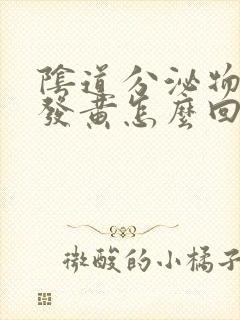 陰道分泌物
發黃怎麼回
微酸的小橘子